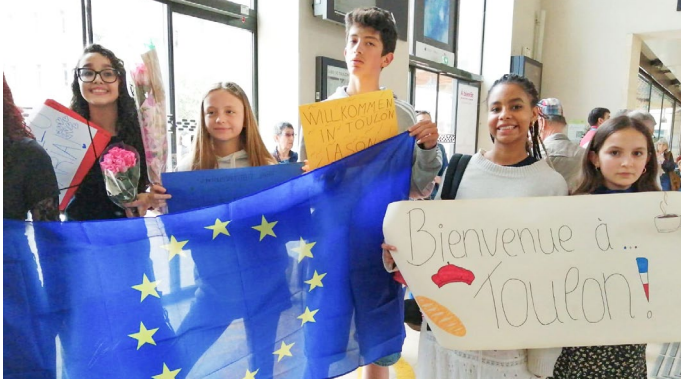 WILLKOMMEN
IN TOULON
JASON
Bienvenue à ...
Toulon !